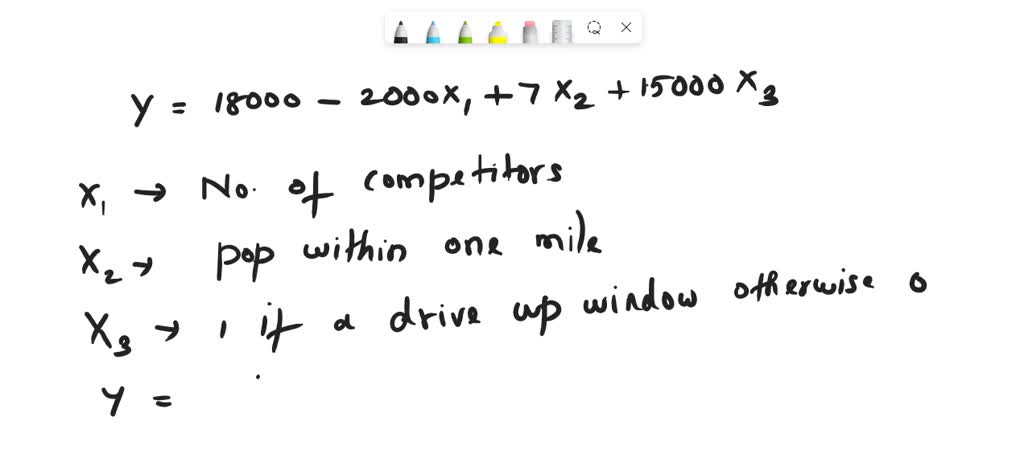 Y = 18000 - 2000X₁ + 7X₂ + 15000X₃
X₁ → No. of competitors
X₂ → pop within one mile
X₃ → 1 if a drive up window otherwise 0
Y =